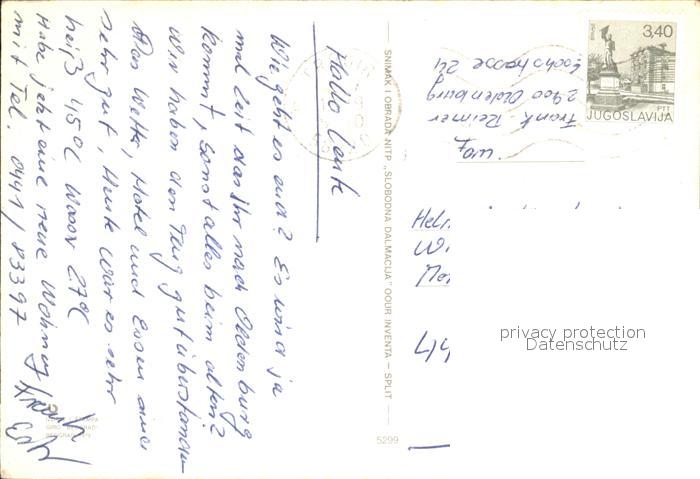 Hallo Leute
Wie geht es euch? Es wird ja
mal Zeit das Ihr nach Oldenburg
kommt, sonst alles beim alten?
Wir haben den Flug gut überstanden
Das Wetter, Hotel und Essen sind
sehr gut, Heute war es sehr
heiß 45°C Wasser 27°C
Habe jetzt eine neue Wohnung
mit Tel. 0441/83397
SNIMAK I OBRADA NITP „SLOBODNA DALMACIJA" OOUR INVENTA – SPLIT
5299
Frank Reimer
2900 Oldenburg
24
3,40
PTT
JUGOSLAVIJA
44
privacy protection
Datenschutz